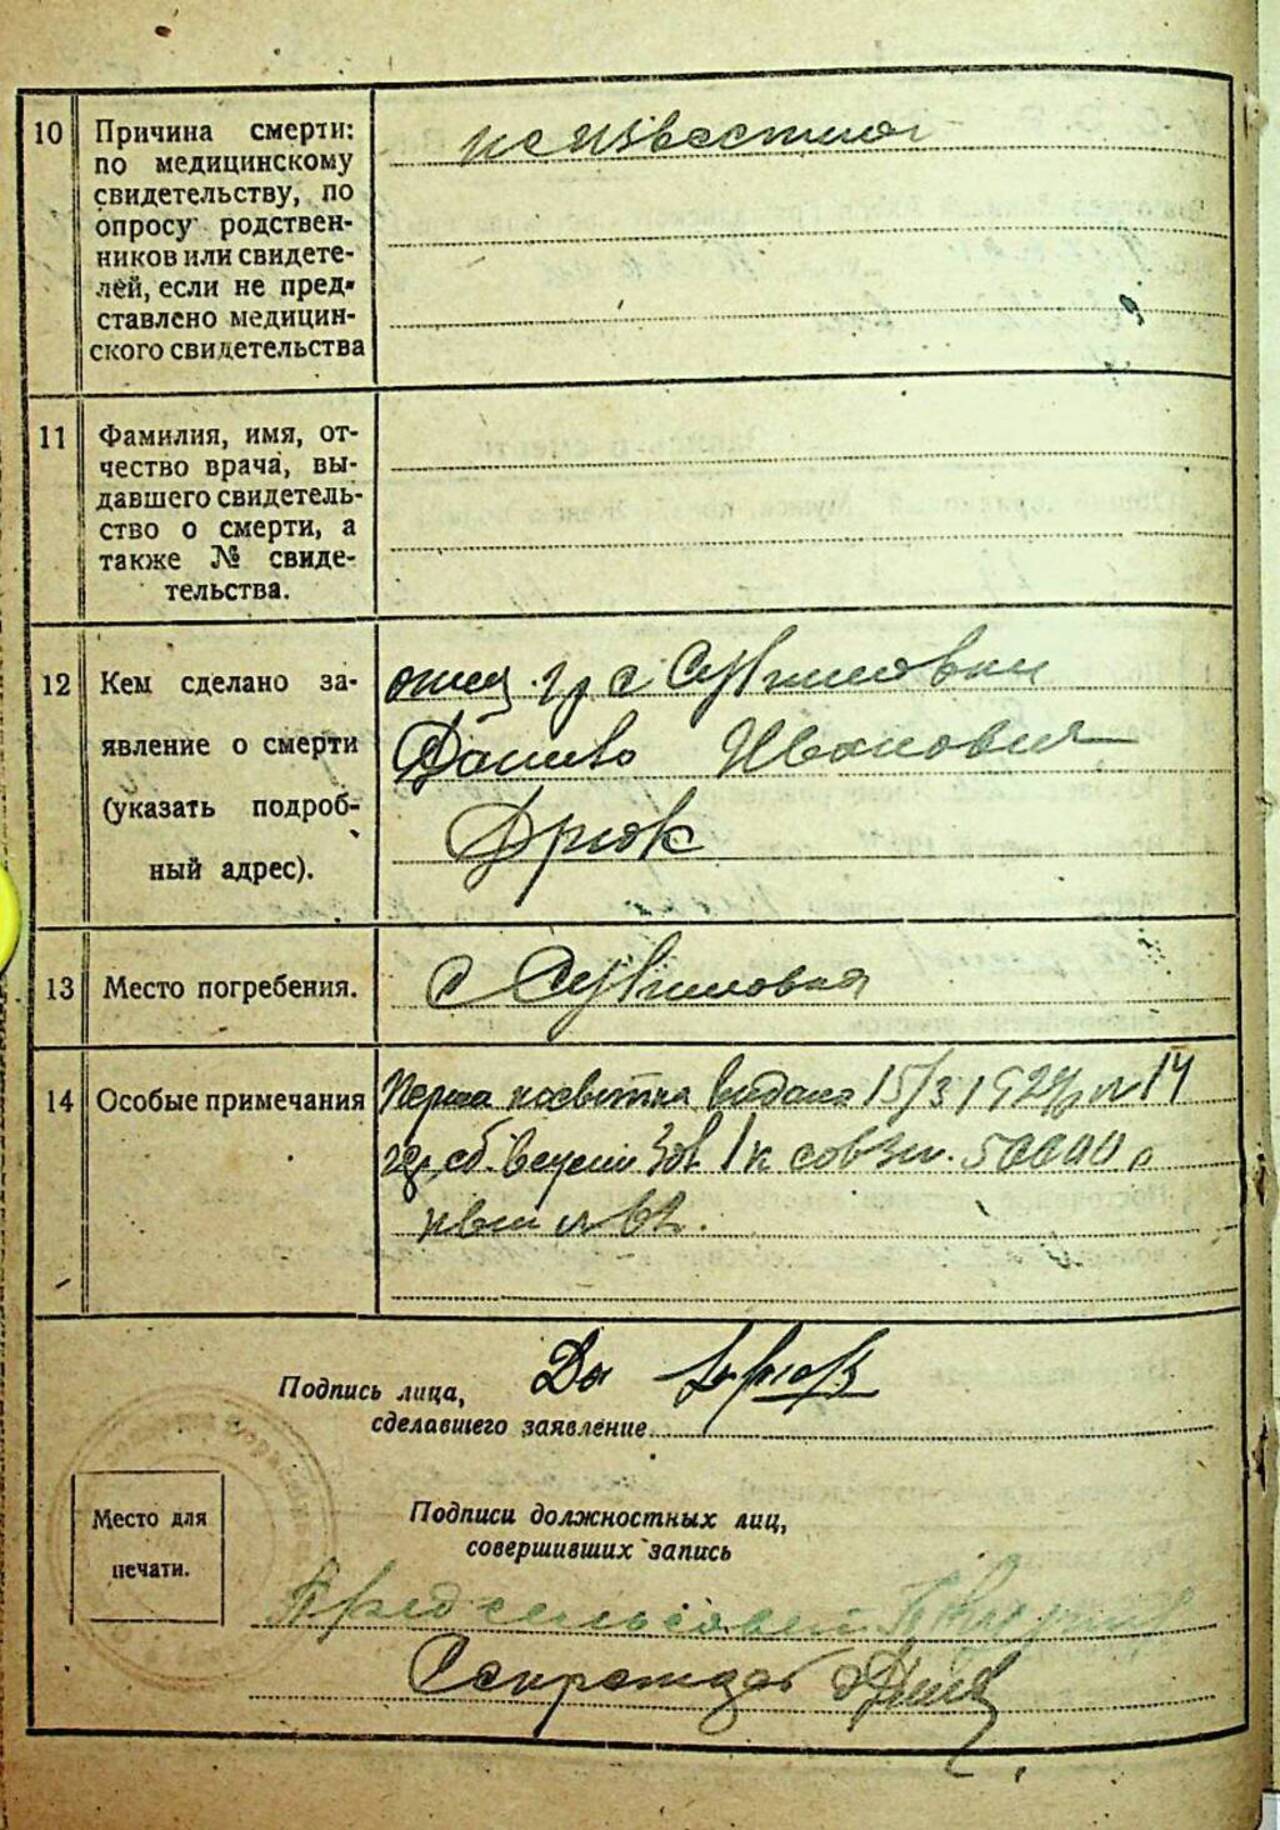 10 Причина смерти:
по медицинскому
свидетельству, по
опросу родствен-
ников или свидете-
лей, если не пред-
ставлено медицин-
ского свидетельства
неизвестно
11 Фамилия, имя, от-
чество врача, вы-
давшего свидетель-
ство о смерти, а
также № свиде-
тельства.
12 Кем сделано за-
явление о смерти
(указать подроб-
ный адрес).
отец гр с
Данило Иванович
Дрюк
13 Место погребения.
с
14 Особые примечания
Перша посвитка видана 15/3 192 14
сб.
Подпись лица,
сделавшего заявление
Дрюк
Место для
печати.
Подписи должностных лиц,
совершивших запись
Пред сельсовет
Секретарь